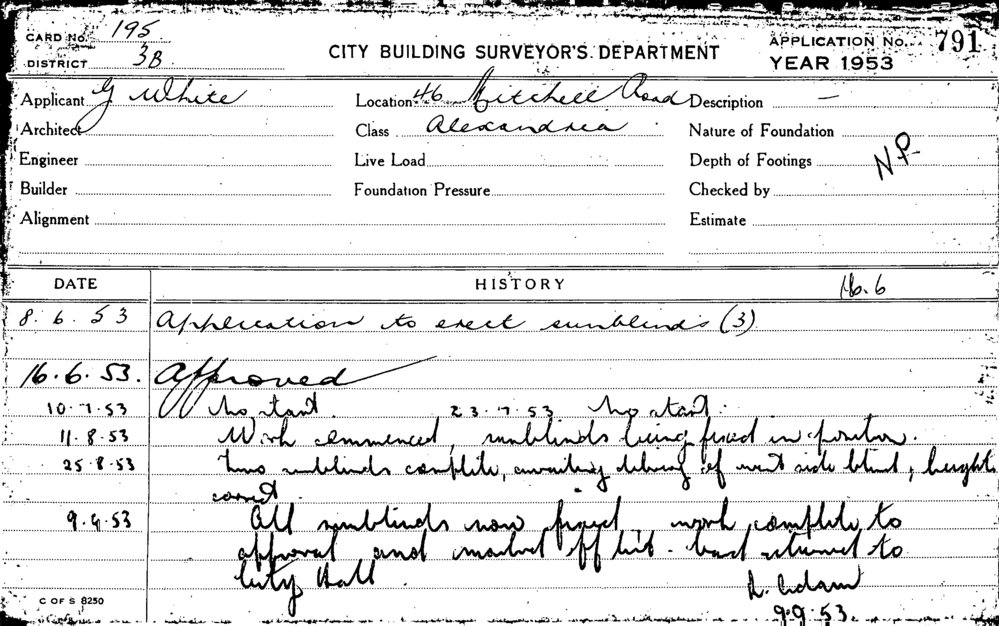 CARD No. 195
DISTRICT 3B
CITY BUILDING SURVEYOR'S DEPARTMENT
APPLICATION No. 791
YEAR 1953
Applicant G White Location 46 Mitchell Road Description —
Architect Class Alexandria Nature of Foundation
Engineer Live Load Depth of Footings NP
Builder Foundation Pressure Checked by
Alignment Estimate
DATE HISTORY 16.6
8.6.53 Application to erect sunblinds (3)
16.6.53. Approved
10.7.53 No start. 23.7.53 No start.
11.8.53 Work commenced, sunblinds being fixed in position.
25.8.53 Two sunblinds complete, awaiting delivery of west side blind, height
correct.
9.9.53 All sunblinds now fixed, work complete to
approval and marked off list - card returned to
City Hall.
9.9.53.
C OF S 8250